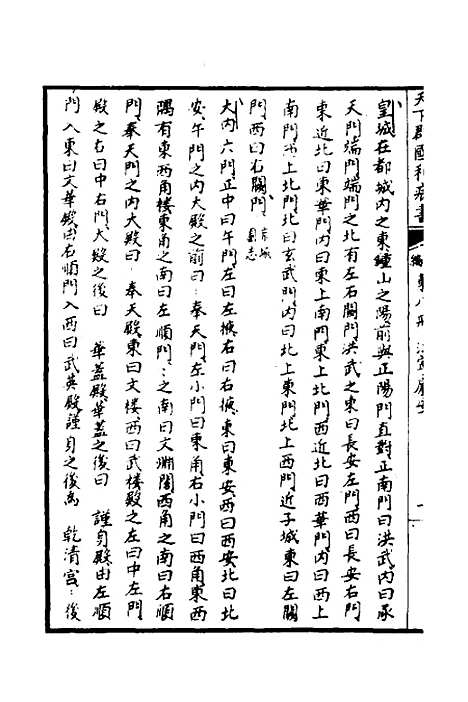 天下郡國利病書
皇城在都城內之東鍾山之陽前與正陽門直對正南門曰洪武內曰承
天門端門端門之北有左右闕門洪武之東曰長安左門西曰長安右門
東近北曰東華門內曰東上南門東上北門西近北曰西華門內曰西上
南門西上北門北曰玄武門內曰北上東門北上西門近子城東曰左闕
門西曰右闕門 京城圖志
大內六門正中曰午門左曰左掖右曰右掖東曰東安西曰西安北曰北
安午門之內大殿之前曰 奉天門左小門曰東角右小門曰西角東西
隅有東西角樓東角之南曰左順門：之南曰文淵閣西角之南曰右順
門奉天門之內大殿曰 奉天殿東曰文樓西曰武樓殿之左曰中左門
殿之右曰中右門大殿之後曰 華蓋殿華蓋之後曰 謹身殿由左順
門入東曰文華殿由右順門入西曰武英殿謹身之後為 乾清宮：後